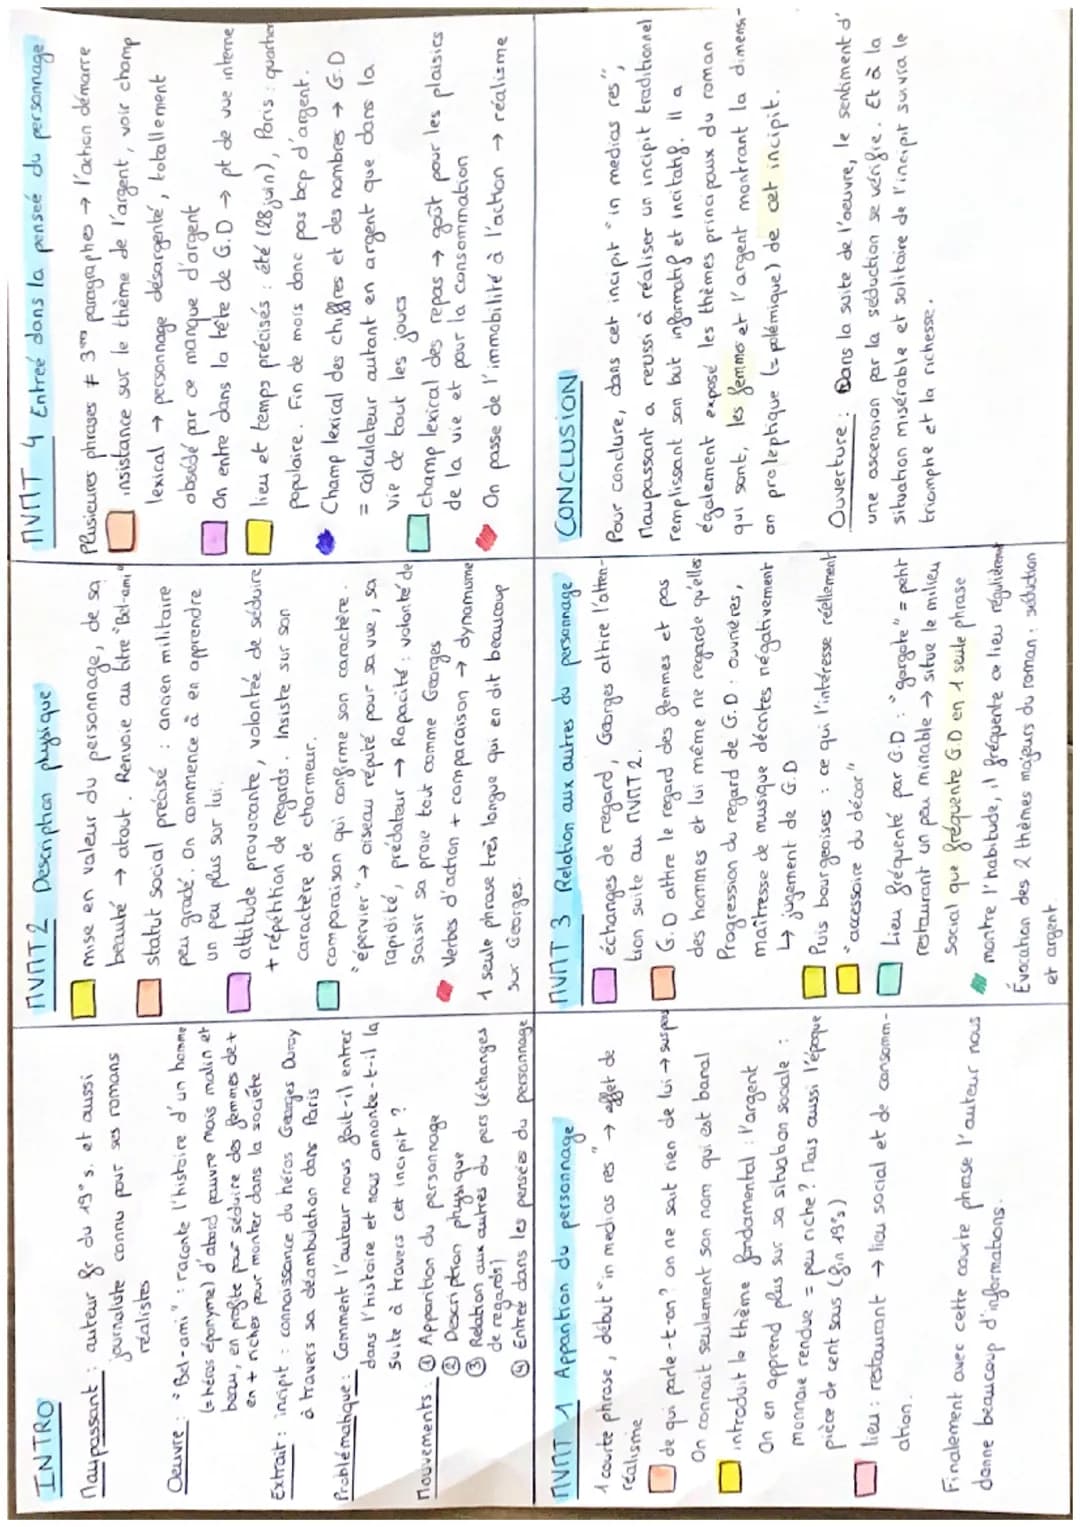 INTRO
Maupassant : auteur fr du 19° s. et aussi
journaliste connu pour ses romans
réalistes
Oeuvre : "Bel-ami" : raconte l'histoire d'un homme
(= héros éponyme) d'abord pauvre mais malin et
beau, en profite pour séduire des femmes de +
en + riches pour monter dans la société
Extrait : incipit : connaissance du héros Georges Duroy
à travers sa déambulation dans Paris
Problématique : Comment l'auteur nous fait-il entrer
dans l'histoire et nous annonce-t-il la
suite à travers cet incipit ?
Mouvements : ① Apparition du personnage
② Description physique
③ Relation aux autres du pers (échanges
de regards)
④ Entrée dans les pensées du personnage
MVMT 2 Description physique
mise en valeur du personnage, de sa
beauté → atout. Renvoie au titre "Bel-ami"
statut social précisé : ancien militaire
peu gradé. On commence à en apprendre
un peu plus sur lui.
attitude provocante, volontée de séduire
+ répétition de regards. Insiste sur son
caractère de charmeur.
comparaison qui confirme son caractère.
"épervier" → oiseau réputé pour sa vue, sa
rapidité, prédateur → Rapacité : volonté de
saisir sa proie tout comme Georges
Verbes d'action + comparaison → dynamisme
1 seule phrase très longue qui en dit beaucoup
sur Georges.
MVMT 4 Entreé dans la penseé du personnage
Plusieures phrases ≠ 3 ers paragraphes → l'action démarre
insistance sur le thème de l'argent, voir champ
lexical → personnage désargenté, totallement
obsédé par ce manque d'argent
On entre dans la tête de G.D → pt de vue interne
lieu et temps précisés : été (28 juin), Paris : quartier
populaire. Fin de mois donc pas bcp d'argent.
Champ lexical des chiffres et des nombres → G.D
= calculateur autant en argent que dans la
vie de tout les jours
champ lexical des repas → goût pour les plaisirs
de la vie et pour la consommation
On passe de l'immobilité à l'action → réalisme
MVMT 1 Apparition du personnage
1 courte phrase, début "in medias res" → effet de
réalisme
de qui parle-t-on ? on ne sait rien de lui →
On connait seulement son nom qui est banal
introduit le thème fondamental : l'argent
On en apprend plus sur sa situation sociale :
monnaie rendue = peu riche ? Mais aussi l'époque
pièce de cent sous (fin 19°s)
lieu : restaurant → lieu social et de consomm-
ation.
Finalement avec cette courte phrase l'auteur nous
donne beaucoup d'informations.
MVMT 3 Relation aux autres du personnage
échanges de regard, Georges attire l'atten-
tion suite au MVMT 2.
G.D attire le regard des femmes et pas
des hommes et lui même ne regarde qu'elles
Progression du regard de G.D : ouvrières,
maîtresse de musique décrites négativement
↳ jugement de G.D
Puis bourgeoises : ce qui l'intéresse réellement
"accessoire du décor"
Lieu fréquenté par G.D : "gargote" = petit
restaurant un peu minable → situe le milieu
social que fréquente G.D en 1 seule phrase
montre l'habitude, il fréquente ce lieu régulièrement
Évocation des 2 thèmes majeurs du roman : séduction
et argent.
CONCLUSION
Pour conclure, dans cet incipit "in medias res",
Maupassant a reussi à réaliser un incipit traditionnel
remplissant son but informatif et incitatif. Il a
également exposé les thèmes principaux du roman
qui sont, les femmes et l'argent montrant la dimensi-
on proleptique (= polémique) de cet incipit.
Ouverture : Dans la suite de l'oeuvre, le sentiment d'
une ascension par la séduction se vérifie. Et à la
situation misérable et solitaire de l'incipit suivra le
triomphe et la richesse.